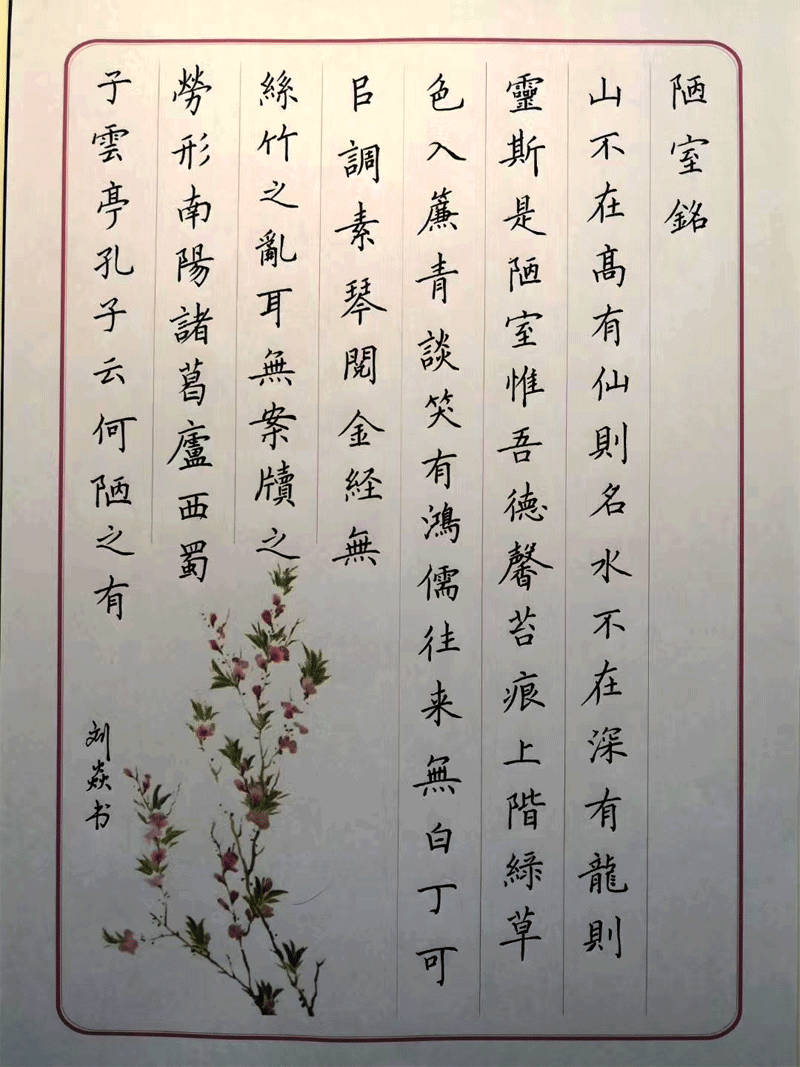 陋室銘
山不在高有仙則名水不在深有龍則
靈斯是陋室惟吾德馨苔痕上階緑草
色入簾青談笑有鴻儒往来無白丁可
㠯調素琴閱金経無
絲竹之亂耳無案牘之
勞形南陽諸葛廬西蜀
子雲亭孔子云何陋之有
刘焱书